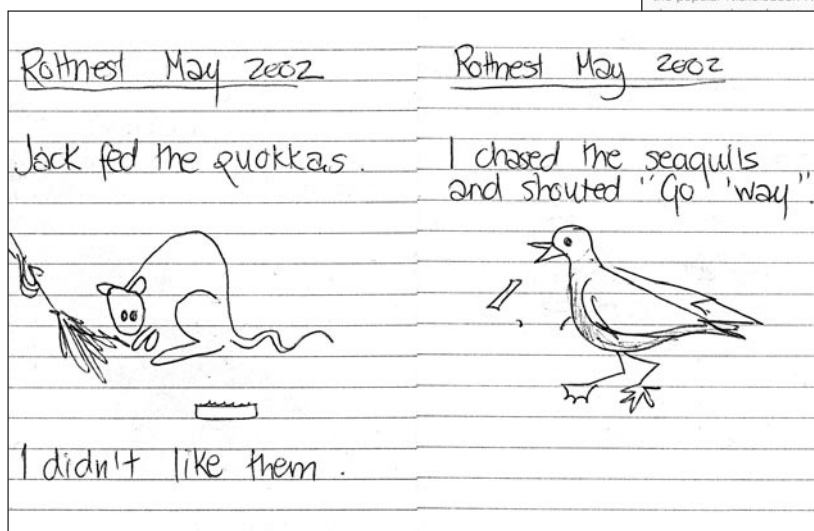 Rottnest May 2002
Jack fed the quokkas.
I didn't like them.
Rottnest May 2002
I chased the seagulls
and shouted "Go 'way".